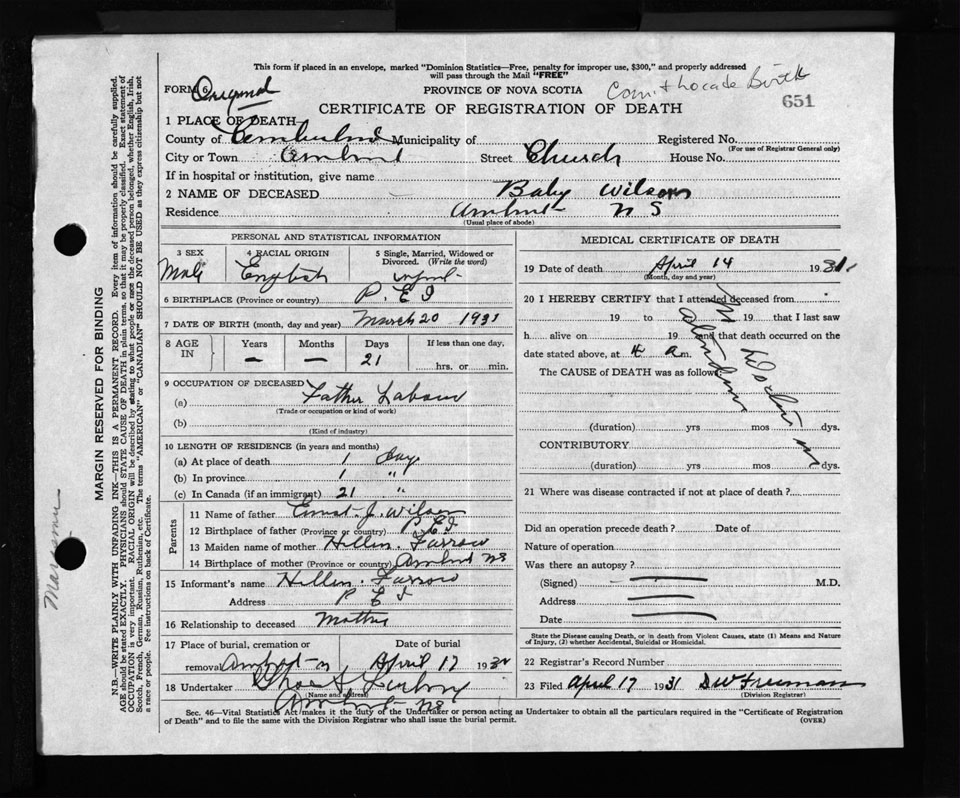 This form if placed in an envelope, marked "Dominion Statistics—Free, penalty for improper use, $300," and properly addressed
will pass through the Mail "FREE"
FORM 6
Original
PROVINCE OF NOVA SCOTIA
Birth
651
CERTIFICATE OF REGISTRATION OF DEATH
1 PLACE OF DEATH
County of Cumberland Municipality of Registered No.
(For use of Registrar General only)
City or Town Amherst Street Church House No.
If in hospital or institution, give name
2 NAME OF DECEASED Baby Wilson
Residence Amherst N S
(Usual place of abode)
PERSONAL AND STATISTICAL INFORMATION
3 SEX Male
4 RACIAL ORIGIN English
5 Single, Married, Widowed or Divorced. (Write the word) infant
6 BIRTHPLACE (Province or country) P. E I
7 DATE OF BIRTH (month, day and year) March 20 1931
8 AGE IN Years — Months — Days 21 If less than one day. hrs. or min.
9 OCCUPATION OF DECEASED
(a) Father Labour
(Trade or occupation or kind of work)
(b)
(Kind of industry)
10 LENGTH OF RESIDENCE (in years and months)
(a) At place of death 1 day
(b) In province 1 "
(c) In Canada (if an immigrant) 21 "
Parents
11 Name of father Ernest J. Wilson
12 Birthplace of father (Province or country) P E I
13 Maiden name of mother Hellen Farrow
14 Birthplace of mother (Province or country) Amherst NS
15 Informant's name Hellen Farrow
Address P E I
16 Relationship to deceased Mother
17 Place of burial, cremation or removal Amherst Date of burial April 17 193
18 Undertaker
(Name and address)
Amherst NS
MEDICAL CERTIFICATE OF DEATH
19 Date of death April 14 1931
(Month, day and year)
20 I HEREBY CERTIFY that I attended deceased from
19 to 19 that I last saw
h alive on 19 and that death occurred on the
date stated above, at 4 a m.
The CAUSE of DEATH was as follows:
No Doctor in attendance
(duration) yrs mos dys.
CONTRIBUTORY
(duration) yrs mos dys.
21 Where was disease contracted if not at place of death?
Did an operation precede death? Date of
Nature of operation
Was there an autopsy?
(Signed) M.D.
Address
Date
State the Disease causing Death, or in death from Violent Causes, state (1) Means and Nature
of Injury, (2) whether Accidental, Suicidal or Homicidal.
22 Registrar's Record Number
23 Filed April 17 1931 D W Freeman
(Division Registrar)
Sec. 46—Vital Statistics Act makes it the duty of the Undertaker or person acting as Undertaker to obtain all the particulars required in the "Certificate of Registration
of Death" and to file the same with the Division Registrar who shall issue the burial permit.
(OVER)
MARGIN RESERVED FOR BINDING
N.B.—WRITE PLAINLY WITH UNFADING INK—THIS IS A PERMANENT RECORD. Every item of information should be carefully supplied.
AGE should be stated EXACTLY. PHYSICIANS should STATE CAUSE OF DEATH in plain terms, so that it may be properly classified. Exact statement of
OCCUPATION is very important. RACIAL ORIGIN will be described by stating to what people or race the deceased person belonged, whether English, Irish,
Scotch, French, German, Russian, Ruthenian, etc. The terms "AMERICAN" or "CANADIAN" SHOULD NOT BE USED as they express citizenship but not
a race or people. See instructions on back of Certificate.